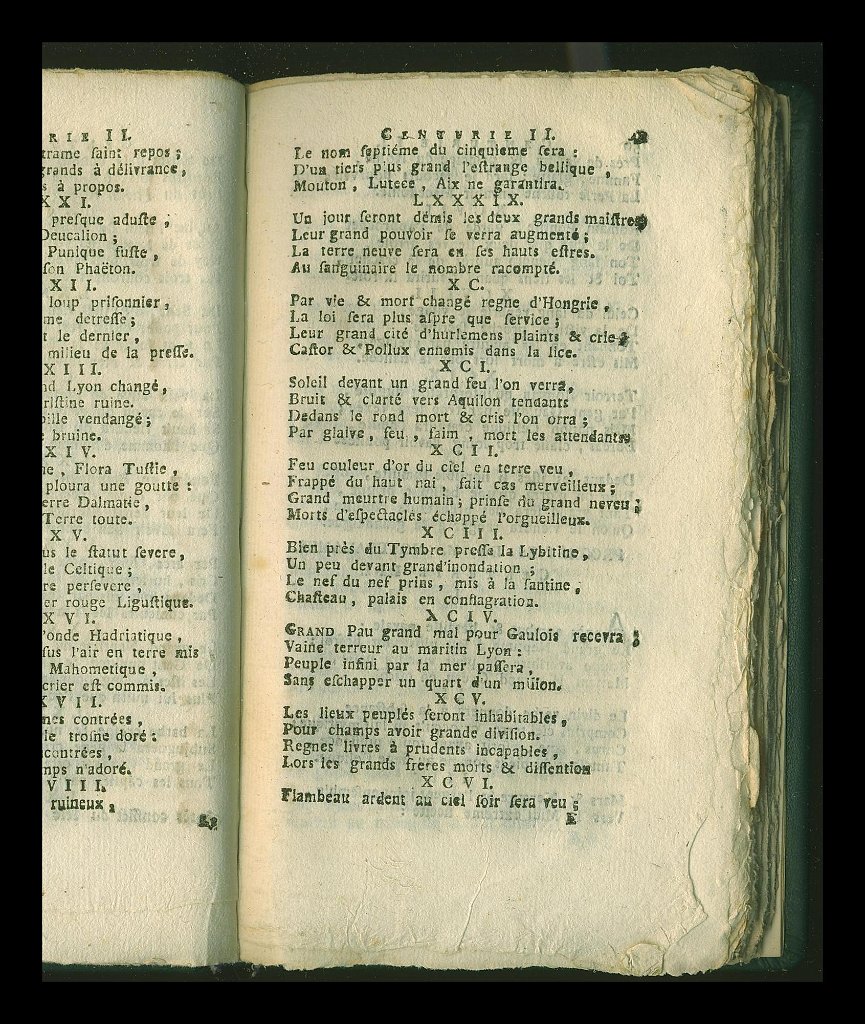 RIE II.
trame saint repos ;
grands à délivrance,
s à propos.
XXI.
presque aduste ,
Deucalion ;
Punique fuste ,
son Phaëton.
XII.
loup prisonnier ,
me detresse ;
t le dernier ,
milieu de la presse.
XIII.
nd Lyon changé,
ristine ruine.
bille vendangé ;
e bruine.
XIV.
ne , Flora Tustie ,
ploura une goutte :
erre Dalmatie ,
Terre toute.
XV.
us le statut severe ,
le Celtique ;
re persevere ,
er rouge Ligustique.
XVI.
l'onde Hadriatique ,
sus l'air en terre mis
Mahometique ,
crier est commis.
XVII.
nes contrées ,
le trosne doré :
contrées ,
mps n'adoré.
VIII.
ruineux ,
CENTURIE II.
Le nom septiéme du cinquieme sera :
D'un tiers plus grand l'estrange bellique ,
Mouton , Lutece , Aix ne garantira.
LXXXIX.
Un jour seront démis les deux grands maistres ,
Leur grand pouvoir se verra augmenté ;
La terre neuve sera en ses hauts estres.
Au sanguinaire le nombre racompté.
XC.
Par vie & mort changé regne d'Hongrie ,
La loi sera plus aspre que service ;
Leur grand cité d'hurlemens plaints & crie ,
Castor & Pollux ennemis dans la lice.
XCI.
Soleil devant un grand feu l'on verra,
Bruit & clarté vers Aquilon tendants
Dedans le rond mort & cris l'on orra ;
Par glaive , feu , faim , mort les attendants.
XCII.
Feu couleur d'or du ciel en terre veu ,
Frappé du haut nai , fait cas merveilleux ;
Grand meurtre humain ; prinse du grand neveu ;
Morts d'espectacles échappé l'orgueilleux.
XCIII.
Bien près du Tymbre presse la Lybitine ,
Un peu devant grand'inondation ;
Le nef du nef prins , mis à la santine ,
Chasteau , palais en conflagration.
XCIV.
GRAND Pau grand mal pour Gaulois recevra ;
Vaine terreur au maritin Lyon :
Peuple infini par la mer passera ,
Sans eschapper un quart d'un milion.
XCV.
Les lieux peuplés seront inhabitables ,
Pour champs avoir grande division.
Regnes livres à prudents incapables ,
Lors les grands freres morts & dissention
XCVI.
Flambeau ardent au ciel soir sera veu ;
E